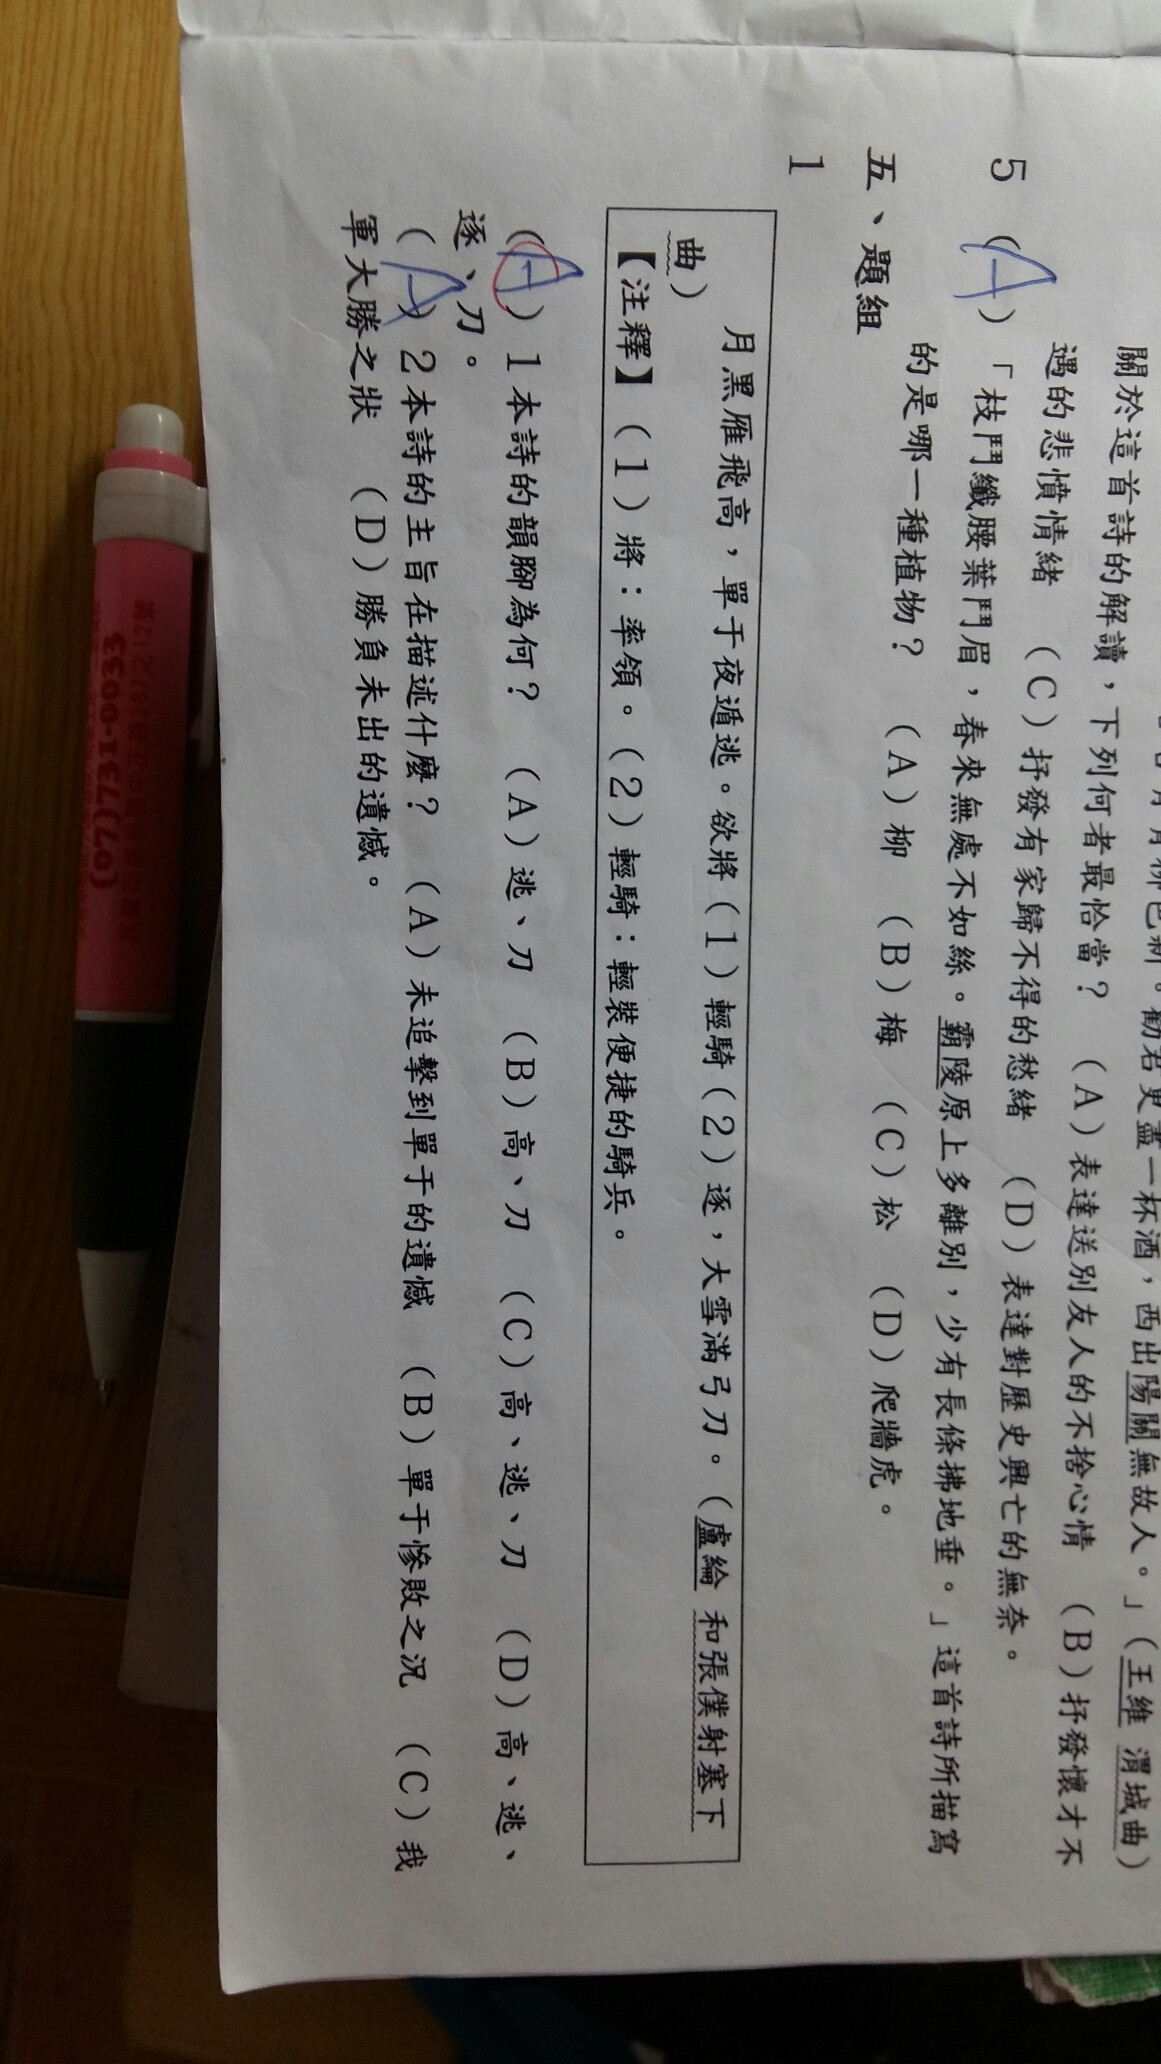 青青柳色新。勸君更盡一杯酒，西出陽關無故人。」（王維 渭城曲）
關於這首詩的解讀，下列何者最恰當？ （A）表達送別友人的不捨心情 （B）抒發懷才不
遇的悲憤情緒 （C）抒發有家歸不得的愁緒 （D）表達對歷史興亡的無奈。
5（A）「枝鬥纖腰葉鬥眉，春來無處不如絲。霸陵原上多離別，少有長條拂地垂。」這首詩所描寫
的是哪一種植物？ （A）柳 （B）梅 （C）松 （D）爬牆虎。
五、題組
1
月黑雁飛高，單于夜遁逃。欲將（1）輕騎（2）逐，大雪滿弓刀。（盧綸 和張僕射塞下
曲）
【注釋】（1）將：率領。（2）輕騎：輕裝便捷的騎兵。
（A）1本詩的韻腳為何？ （A）逃、刀 （B）高、刀 （C）高、逃、刀 （D）高、逃、
逐、刀。
（A）2本詩的主旨在描述什麼？ （A）未追擊到單于的遺憾 （B）單于慘敗之況 （C）我
軍大勝之狀 （D）勝負未出的遺憾。
(07)731-0033